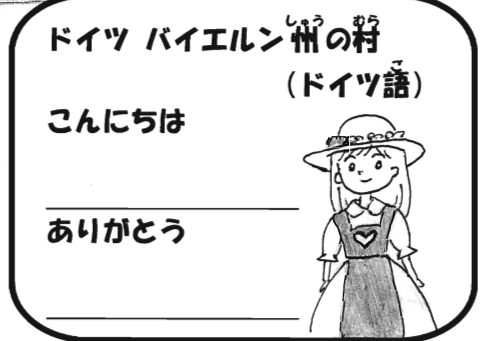 ドイツ バイエルン州の村
（ドイツ語）
こんにちは
ありがとう